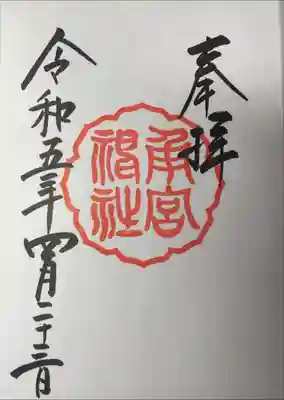 奉拝
角宮神社
令和五年四月二十三日